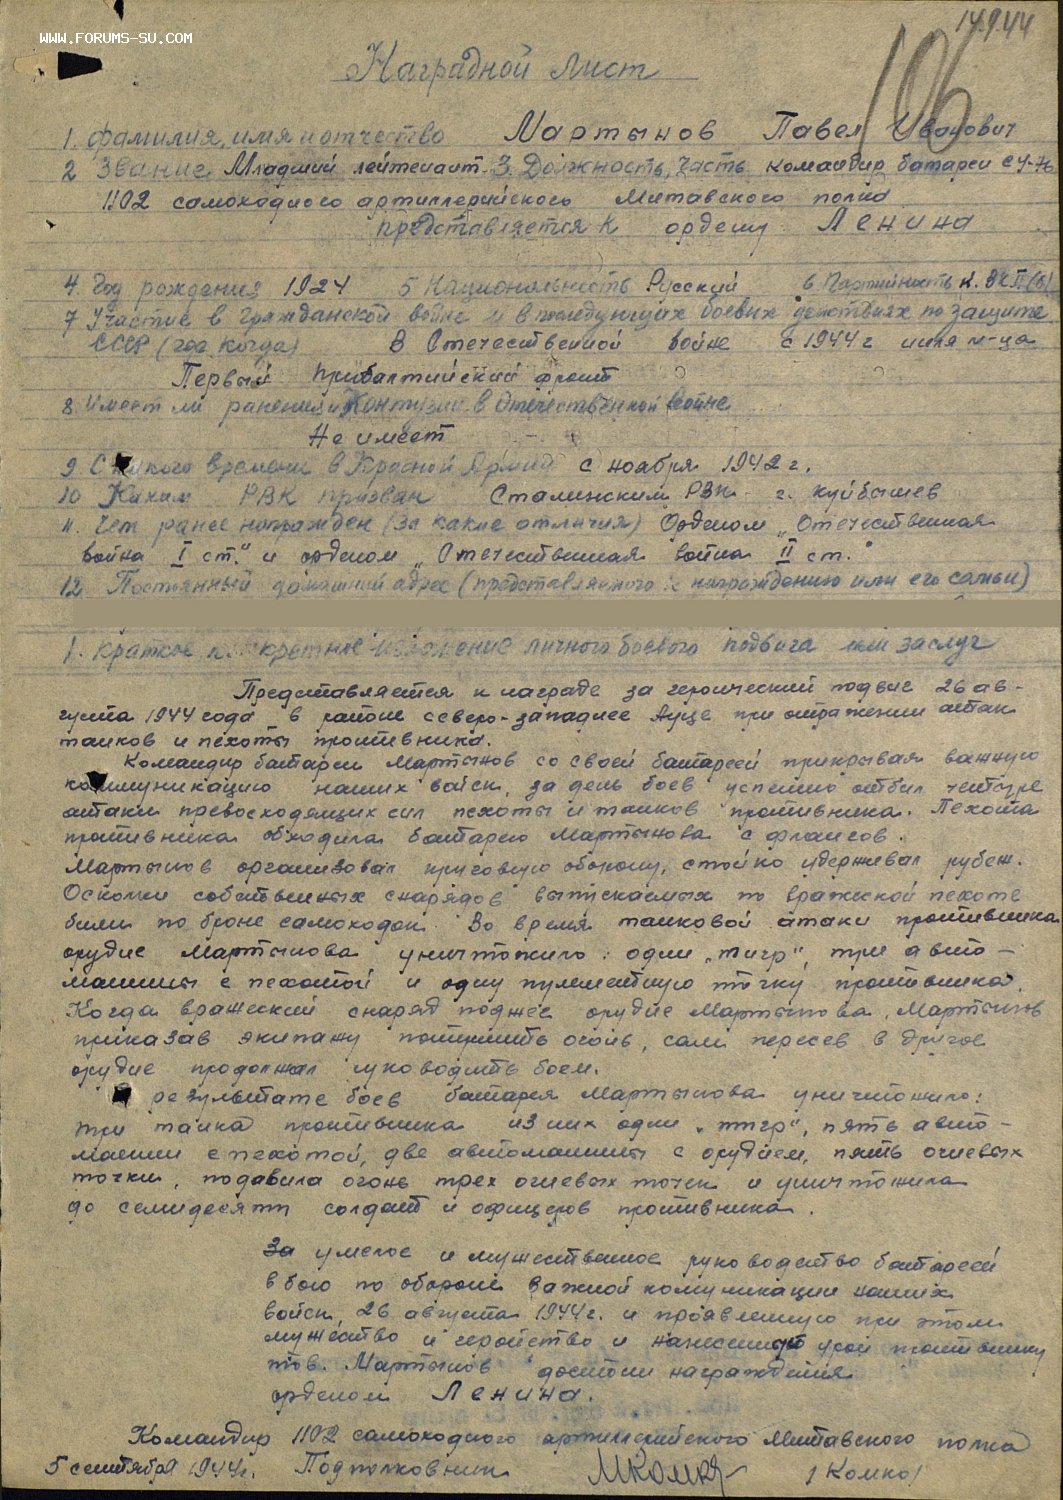 WWW.FORUMS-SU.COM
14.9.44
106
Наградной лист
1. Фамилия, имя и отчество Мартынов Павел Иванович
2 Звание Младший лейтенант 3. Должность, часть командир батареи СУ-76
1102 самоходного артиллерийского Митавского полка
представляется к ордену Ленина
4. Год рождения 1924 5 Национальность Русский 6 Партийность к. ВКП(б)
7 Участие в гражданской войне и в последующих боевых действиях по защите
СССР (где когда) В Отечественной войне с 1944 г июля м-ца
Первый Прибалтийский фронт
8 Имеет ли ранения и контузии в Отечественной войне
Не имеет
9. С какого времени в Красной Армии с ноября 1942 г.
10 Каким РВК призван Сталинским РВК г. Куйбышев
11. Чем ранее награжден (за какие отличия) Орденом „Отечественная
война I ст." и орденом „Отечественная война II ст."
12. Постоянный домашний адрес (представляемого к награждению или его семьи)
1. Краткое конкретное изложение личного боевого подвига или заслуг
Представляется к награде за героический подвиг 26 ав-
густа 1944 года в районе северо-западнее Ауце при отражении атак
танков и пехоты противника.
Командир батареи Мартынов со своей батареей прикрывая важную
коммуникацию наших войск, за день боев успешно отбил четыре
атаки превосходящих сил пехоты и танков противника. Пехота
противника обходила батарею Мартынова с флангов.
Мартынов организовал круговую оборону, стойко удерживал рубеж.
Осколки собственных снарядов выпускаемых по вражеской пехоте
били по броне самоходок. Во время танковой атаки противника
орудие Мартынова уничтожило: один „тигр", три авто-
машины с пехотой и одну пулеметную точку противника.
Когда вражеский снаряд поджег орудие Мартынова, Мартынов
приказав экипажу потушить огонь, сам пересев в другое
орудие продолжал руководить боем.
В результате боев батарея Мартынова уничтожила:
три танка противника из них один „тигр", пять авто-
машин с пехотой, две автомашины с орудием, пять огневых
точки, подавила огонь трех огневых точек и уничтожила
до семидесяти солдат и офицеров противника.
За умелое и мужественное руководство батареей
в бою по обороне важной комуникации наших
войск 26 августа 1944 г. и проявленную при этом
мужество и геройство и нанесенный урон противнику
тов. Мартынов достоин награждения
орденом Ленина.
Командир 1102 самоходного артиллерийского Митавского полка
5 сентября 1944 г. Подполковник /Комко/